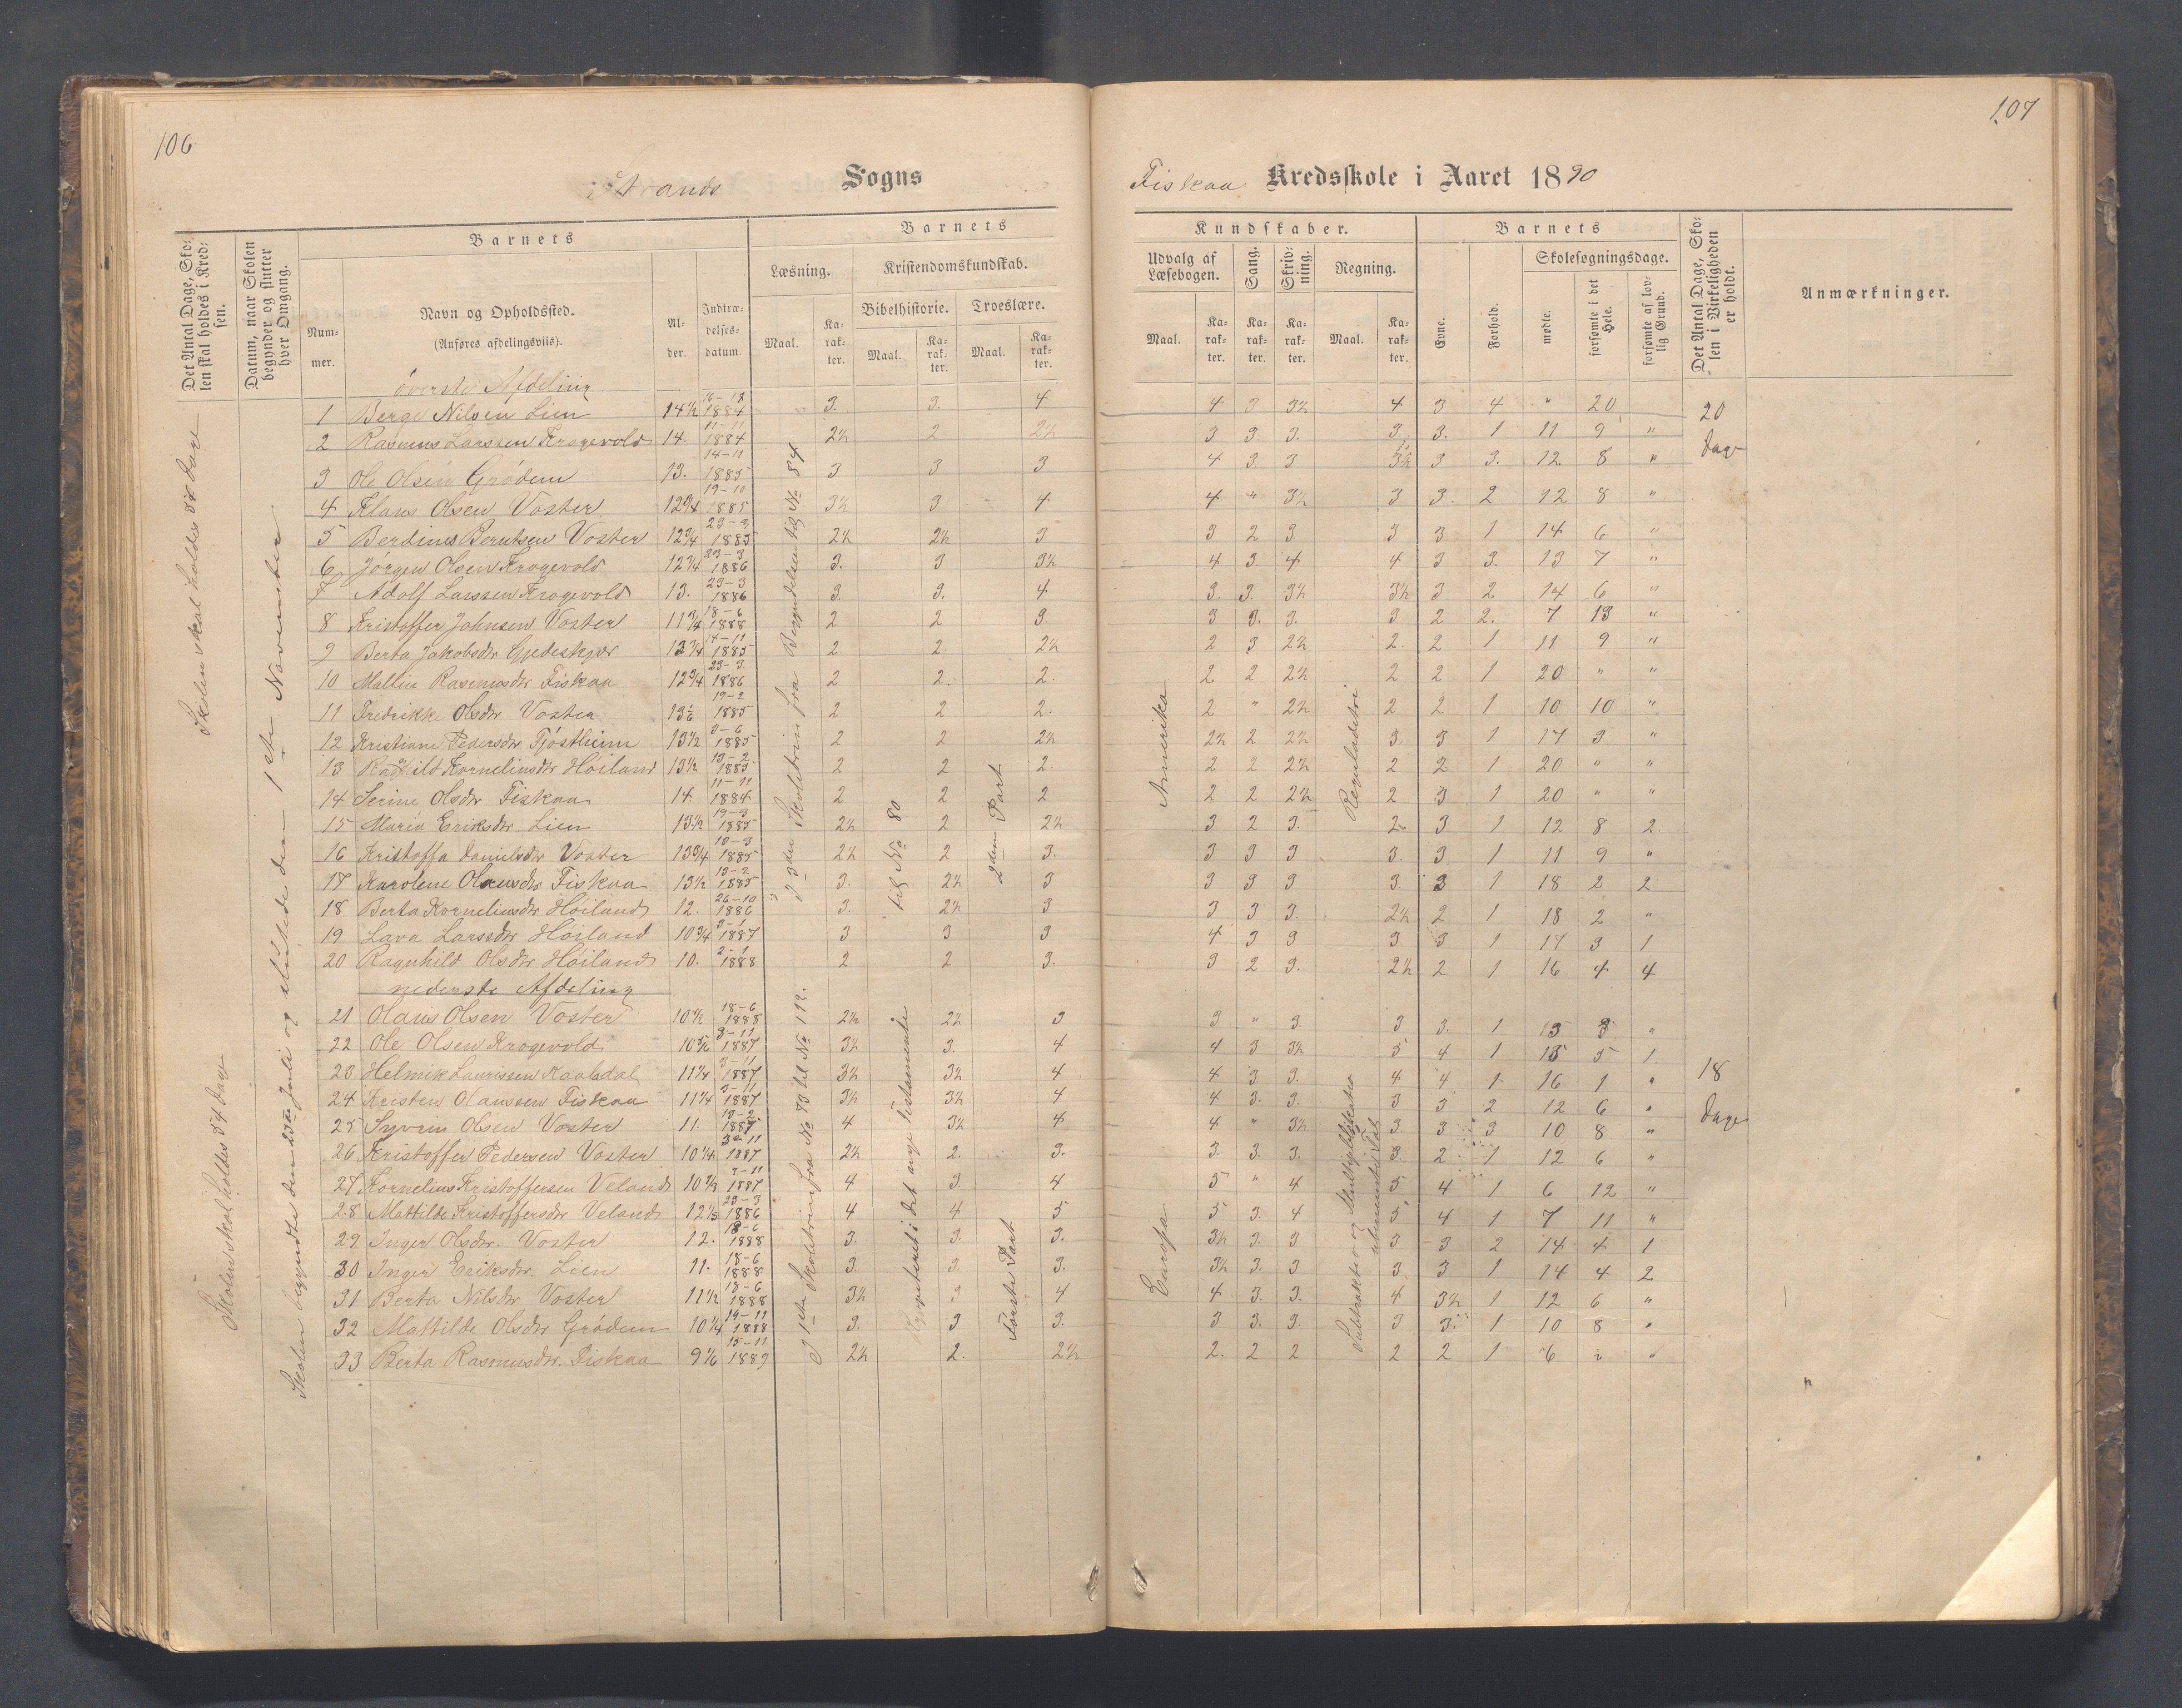 106
i Strands Sogns
Det Antal Dage, Skolen skal holdes i Kredsen.
Datum, naar Skolen begynder og slutter hver Omgang.
Barnets
Nummer.
Navn og Opholdssted.
(Anføres afdelingsviis).
Alder.
Indtrædelsesdatum.
Barnets
Læsning.
Kristendomskundskab.
Bibelhistorie.
Troeslære.
Maal.
Karakter.
Maal.
Karakter.
Maal.
Karakter.
Skolen skal holdes 34 Dage
Skolen skal holdes 34 Dage
Skolen begyndte den 23de Juli og sluttede den 1ste November
øverste Afdeling
1 Berge Nilsen Lien 14½ 16-12 1884 3. 3. 4
2 Rasmus Larssen Krogevold 14. 11-11 1884 2½ 2 2½
3 Ole Olsen Grødem 13. 14-11 1885 3 3 3
4 Klaus Olsen Voster 12¾ 19-10 1885 3½ 3 4
5 Berdines Berntsen Voster 12¾ 23-3 1885 2½ 2½ 3
6 Jørgen Olsen Krogevold 12¼ 23-3 1886 3. 3 3½
7 Adolf Larssen Krogevold 13. 23-3 1886 3. 3. 4
8 Kristoffer Johnsen Voster 11¾ 18-6 1888 2 2 3.
9 Berta Jakobsdtr Gjedeskjær 13¼ 14-11 1885 2. 2. 2½
10 Mallin Rasmusdtr Fiskaa 12¾ 23-3 1886 2 2. 2.
11 Fredrikke Olsdtr Voster 19-2 1885 2 2 2.
12 Kristiane Pedersdtr Tjøstheim 13½ 3-6 1885 2 2 2½
13 Ragnhild Kornelinsdtr Høiland 13½ 13-2 1885 2 2 2.
14 Serine Olsdtr Fiskaa 14. 11-11 1884 2 2 2
15 Maria Eriksdtr Lien 13½ 19-3 1885 2½ 2 2½
16 Kristoffa Danielsdtr Voster 13¾ 10-3 1885 2½ 2 3.
17 Karolene Olausdtr Fiskaa 13½ 13-2 1885 3. 2½ 3
18 Berta Kornelinsdtr Høiland 12. 26-10 1886 3. 2½ 3
19 Lava Larssdtr Høiland 10¾ 1887 3 3 3
20 Ragnhild Olsdtr Høiland 10. 2-1 1888 2 2 3.
nederste Afdeling
21 Olaus Olsen Voster 10½ 18-6 1888 2½ 2½ 3
22 Ole Olsen Krogevold 3-11 1887 3½ 3. 4
23 Helmik Laurissen Kaalsdal 11¼ 3-11 1887 3½ 3½ 4
24 Kristen Olaussen Fiskaa 11¼ 3-11 1887 3½ 3½ 4
25 Syvrin Olsen Voster 11. 13-2 1887 4 3½ 4
26 Kristoffer Pedersen Voster 10¼ 3-11 1887 2½ 2. 3.
27 Kornelius Kristoffersen Veland 3-11 1887 4 3 4
28 Mattilde Kristoffersdtr Veland 23-3 1886 4 4 5
29 Inger Olsdtr. Voster 12. 18-6 1888 3. 3. 3.
30 Inger Eriksdtr. Lien 11. 18-6 1888 3. 3. 3.
31 Berta Nilsdtr Voster 11½ 18-6 1888 3½ 3 4
32 Mattilde Olsdtr Grødem 10¼ 14-11 1888 3. 3 3.
33 Berta Rasmusdtr. Fiskaa 15-11 1889 2½ 2. 2½
I 3die Skoletrin fra Begyndelsen til No 84
til No 80
2den Part
I 1ste Skoletrin fra No 70 til No 112.
i det nye Testamente
Første Part
107
Fiskaa Kredsskole i Aaret 1890
Kundskaber.
Udvalg af Læsebogen.
Sang.
Skrivning.
Regning.
Maal.
Karakter.
Karakter.
Karakter.
Maal.
Karakter.
Barnets
Evne.
Forhold.
Skolesøgningsdage.
mødte.
forsømte i det Hele.
forsømte af lovlig Grund.
Det Antal Dage, Skolen i Virkeligheden er holdt.
Anmærkninger.
Amerika
Reguladetri
Europa
Subtraktion og Multiplikation
ubenævnte Tal
20 Dage
18 Dage
4 3 3½ 4 3 4 " 20
3 3 3. 3. 3. 1 11 9 "
4 3. 3 3½ 3 3. 12 8 "
4 " 3½ 3 3. 2 12 8 "
3 2 3. 3 3 1 14 6 "
4 3. 4 4 3 3. 13 7 "
3. 3. 3½ 3½ 3 2 14 6 "
3 3. 3. 3 2 2. 7 13 "
2 3 2½ 2. 2 1 11 9 "
2 2 2½ 2 2 1 20 " "
2 " 2½ 2 2 1 10 10 "
2½ 2 2½ 3. 3 1 17 3 "
2 2 2½ 2 2 1 20 " "
2 2 2½ 2 3 1 20 " "
3 2 3. 2 3 1 12 8 2.
3 3 3 3. 3 1 11 9 "
3 3 3 3. 3 1 18 2 2
3 3 3. 2½ 2 1 18 2 "
4 3 3 3 3 1 17 3 1
3 2 3. 2½ 2 1 16 4 4
3 " 3. 3 3. 1 15 3 "
4 3 3½ 5 4 1 13 5 1
4 3. 3. 4 4 1 16 1 "
4 3. 3. 3 3 2 12 6 "
4 " 3½ 3. 3 3 10 8 "
3. 3. 3. 3. 2 1 12 6 "
5 " 4 5 4 1 6 12 "
5 3. 4 5 4 1 7 11 "
3½ 3. 3 3 3 2 14 4 1
3½ 3. 3 3. 3 1 14 4 2
4 3. 3. 4 3½ 1 12 6 "
3 3. 3. 3 3. 1 10 8 "
2. 2 2 2 2 1 6